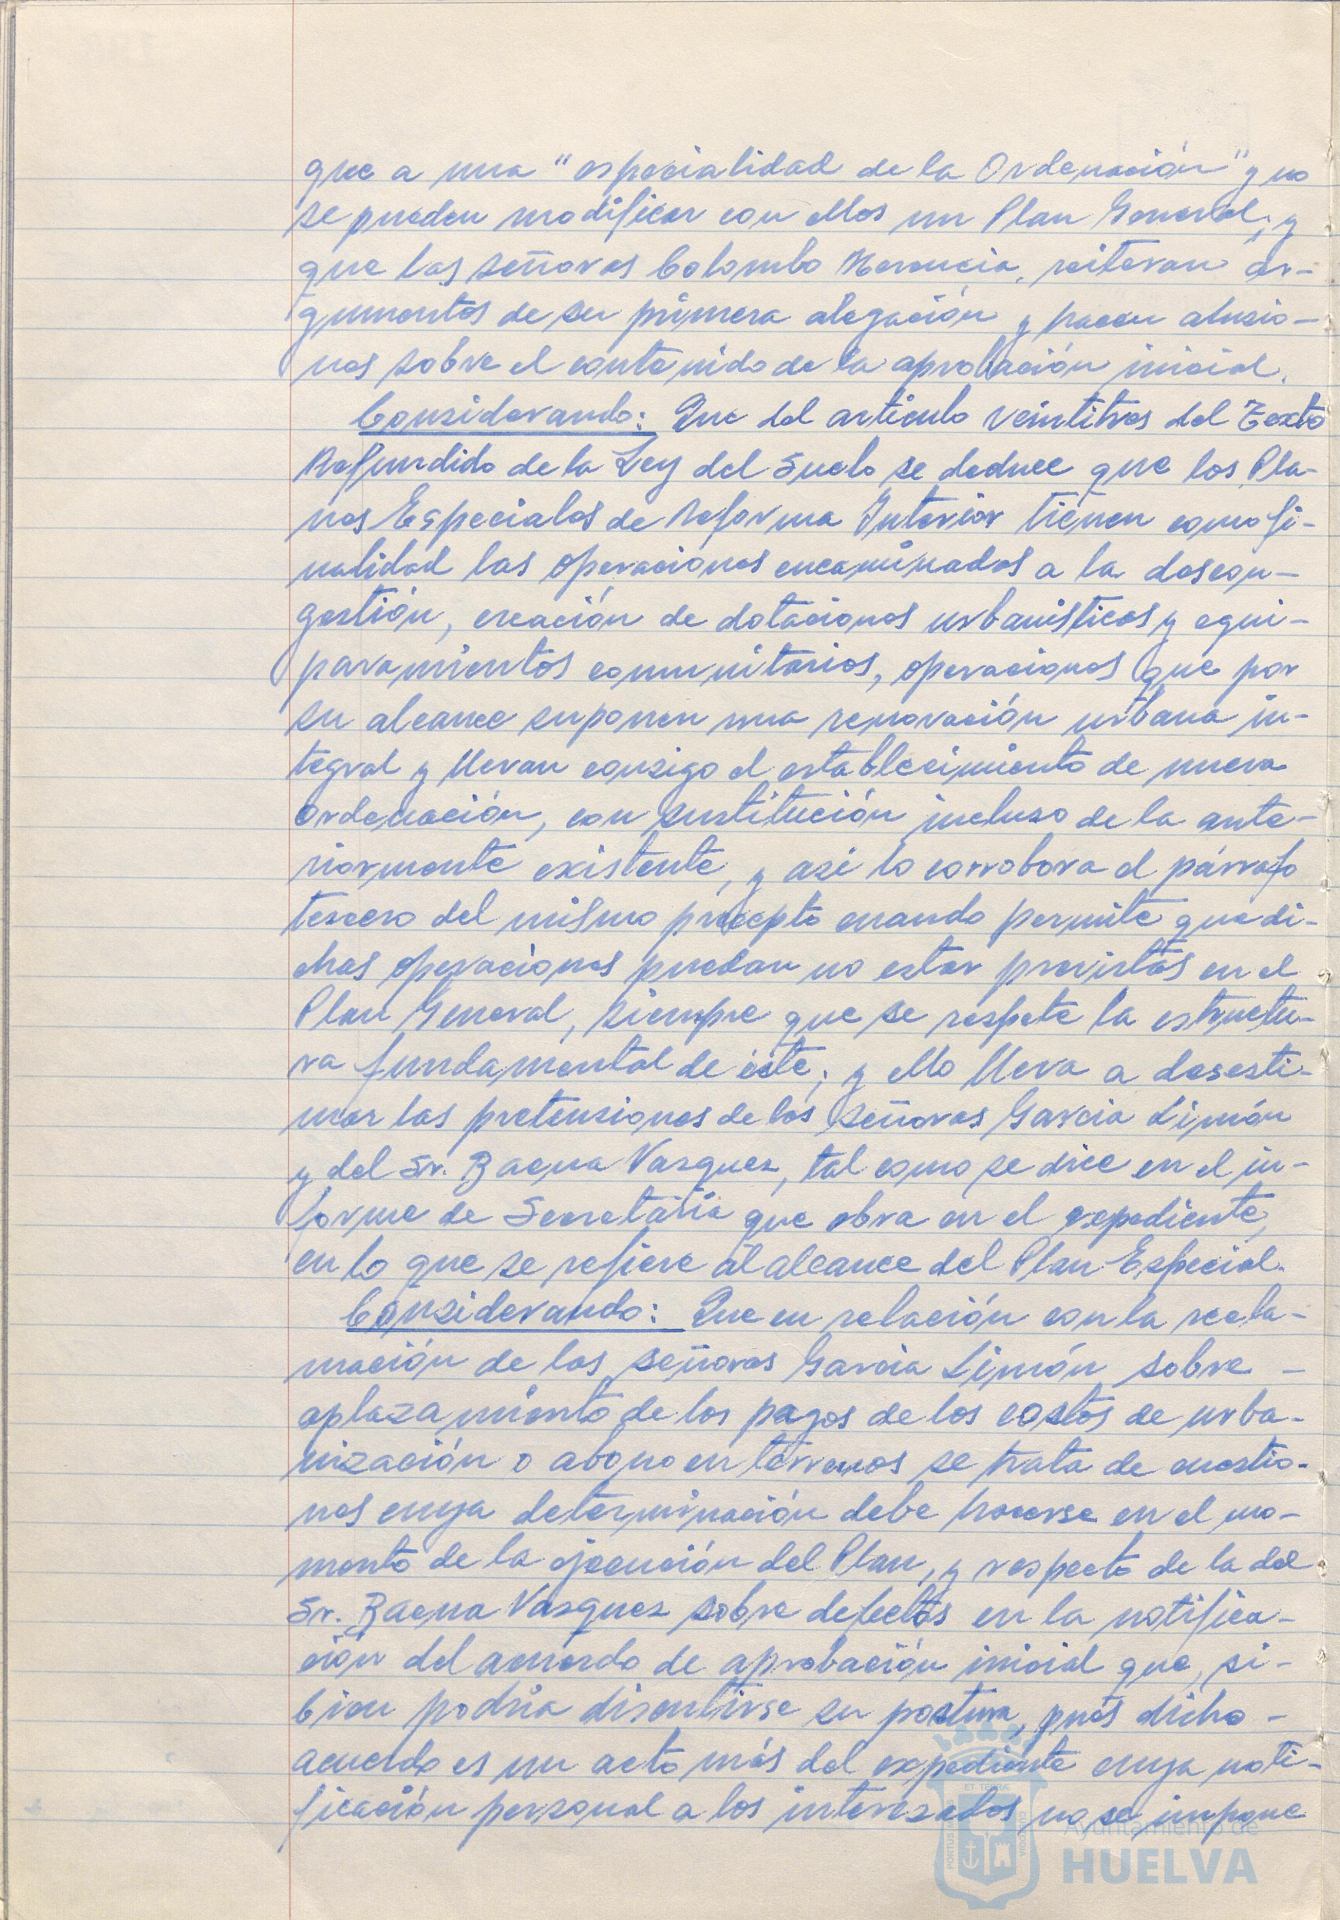 que a una "especialidad de la Ordenación" y no
se pueden modificar con ellos un Plan General; y
que los señores Colombo Merencia, reiteran ar-
gumentos de su primera alegación y hacen alusio-
nes sobre el contenido de la aprobación inicial.
Considerando: Que del artículo veintitres del Texto
Refundido de la Ley del Suelo se deduce que los Pla-
nes Especiales de Reforma Interior tienen como fi-
nalidad las operaciones encaminados a la descon-
gestión, creación de dotaciones urbanísticas y equi-
paramientos comunitarios, operaciones que por
su alcance suponen una renovación urbana in-
tegral y llevan consigo el establecimiento de nueva
Ordenación, con sustitución incluso de la ante-
riormente existente, y así lo corrobora el párrafo
tercero del mismo precepto cuando permite que di-
chas operaciones puedan no estar previstas en el
Plan General, siempre que se respete la estructu-
ra fundamental de éste; y ello lleva a desesti-
mar las pretensiones de los señores García Limón
y del Sr. Baena Vazquez, tal como se dice en el in-
forme de Secretaría que obra en el expediente,
en lo que se refiere al alcance del Plan Especial.
Considerando: Que en relación con la recla-
mación de los señores García Limón sobre -
aplazamiento de los pagos de los costos de urba-
nización o abono en terrenos se trata de cuestio-
nes cuya determinación debe hacerse en el mo-
mento de la ejecución del Plan, y respecto de la del
Sr. Baena Vazquez sobre defectos en la notifica-
ción del acuerdo de aprobación inicial que, si-
bien podría discutirse su postura, pués dicho -
acuerdo es un acto más del expediente cuya noti-
ficación personal a los interesados no se impone
Ayuntamiento de
HUELVA